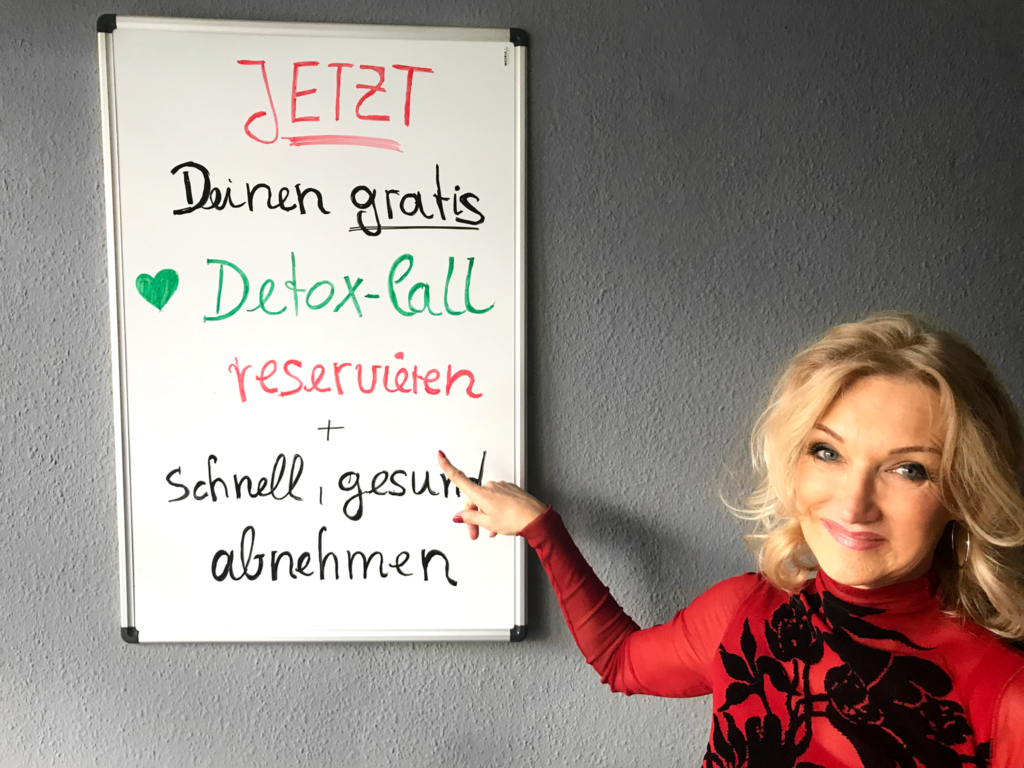 JETZT
Deinen gratis
Detox-Call
reservieren
+
schnell, gesund
abnehmen